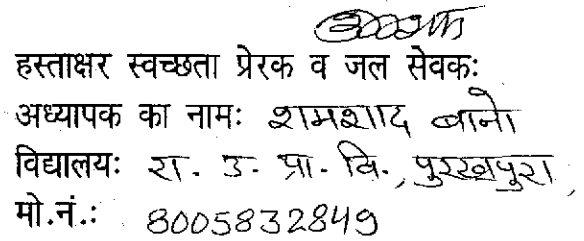 हस्ताक्षर स्वच्छता प्रेरक व जल सेवकः
अध्यापक का नामः शमशाद बानो
विद्यालयः रा. उ. प्रा. वि., पुरखपुरा,
मो.नं.: 8005832849